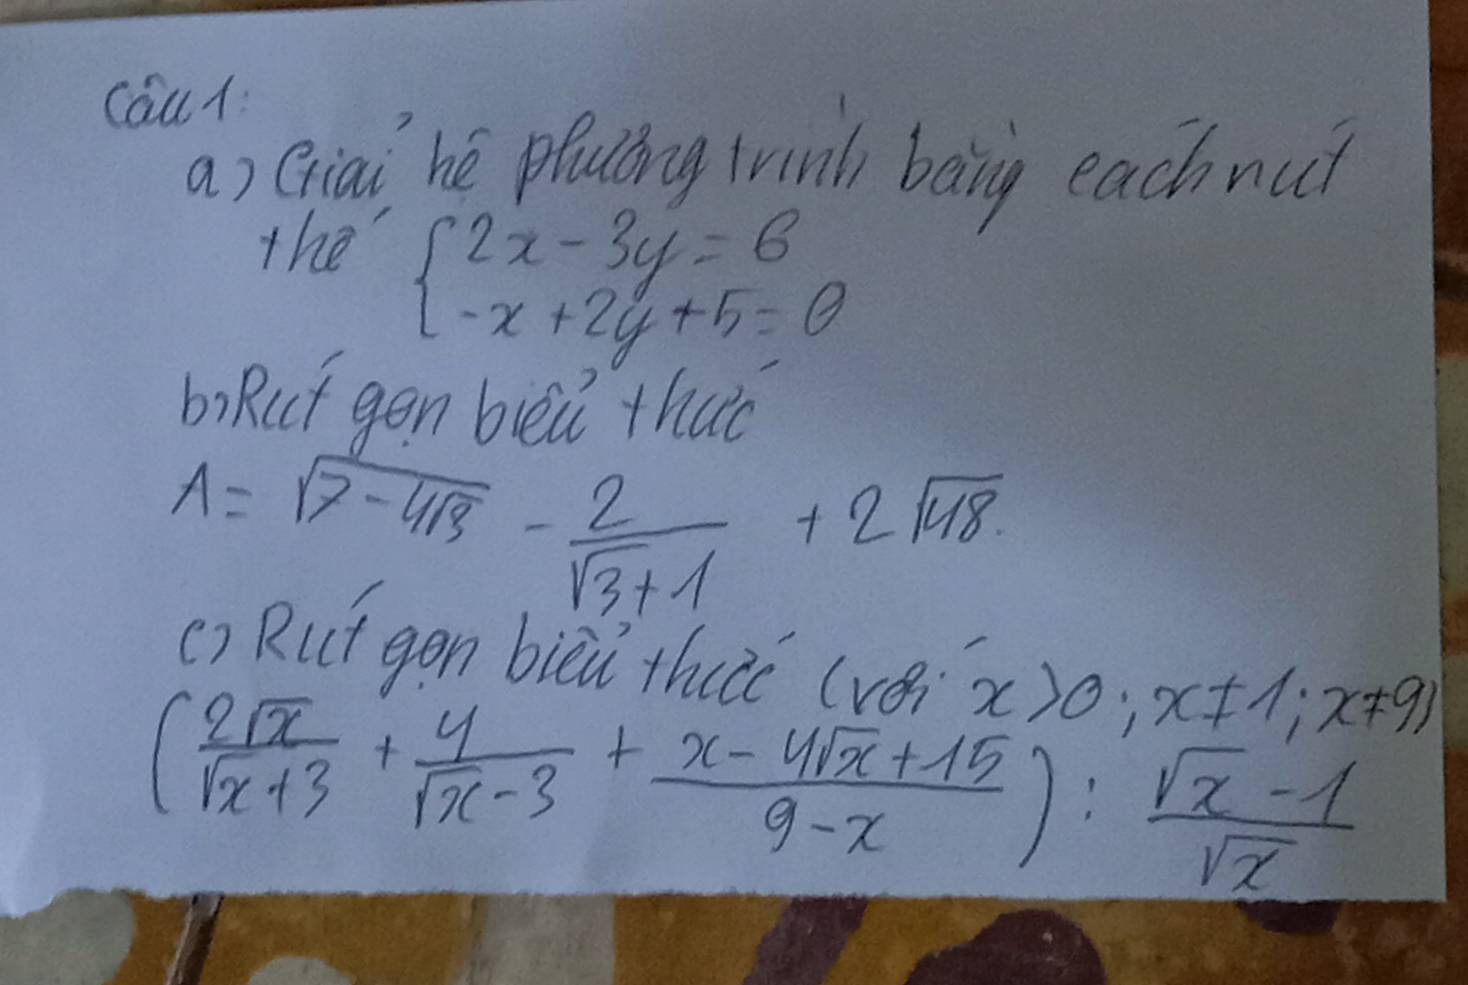 Câu 1:
a) Giải hệ phương trình bằng cách rút
thế { 2x - 3y = 6
-x + 2y + 5 = 0
b) Rút gọn biểu thức
A = √(7 - 4√3) - 2/(√3 + 1) + 2√48.
c) Rút gọn biểu thức (với x > 0; x ≠ 1; x ≠ 9)
( 2√x/(√x + 3) + 4/(√x - 3) + (x - 4√x + 15)/(9 - x) ) : (√x - 1)/√x